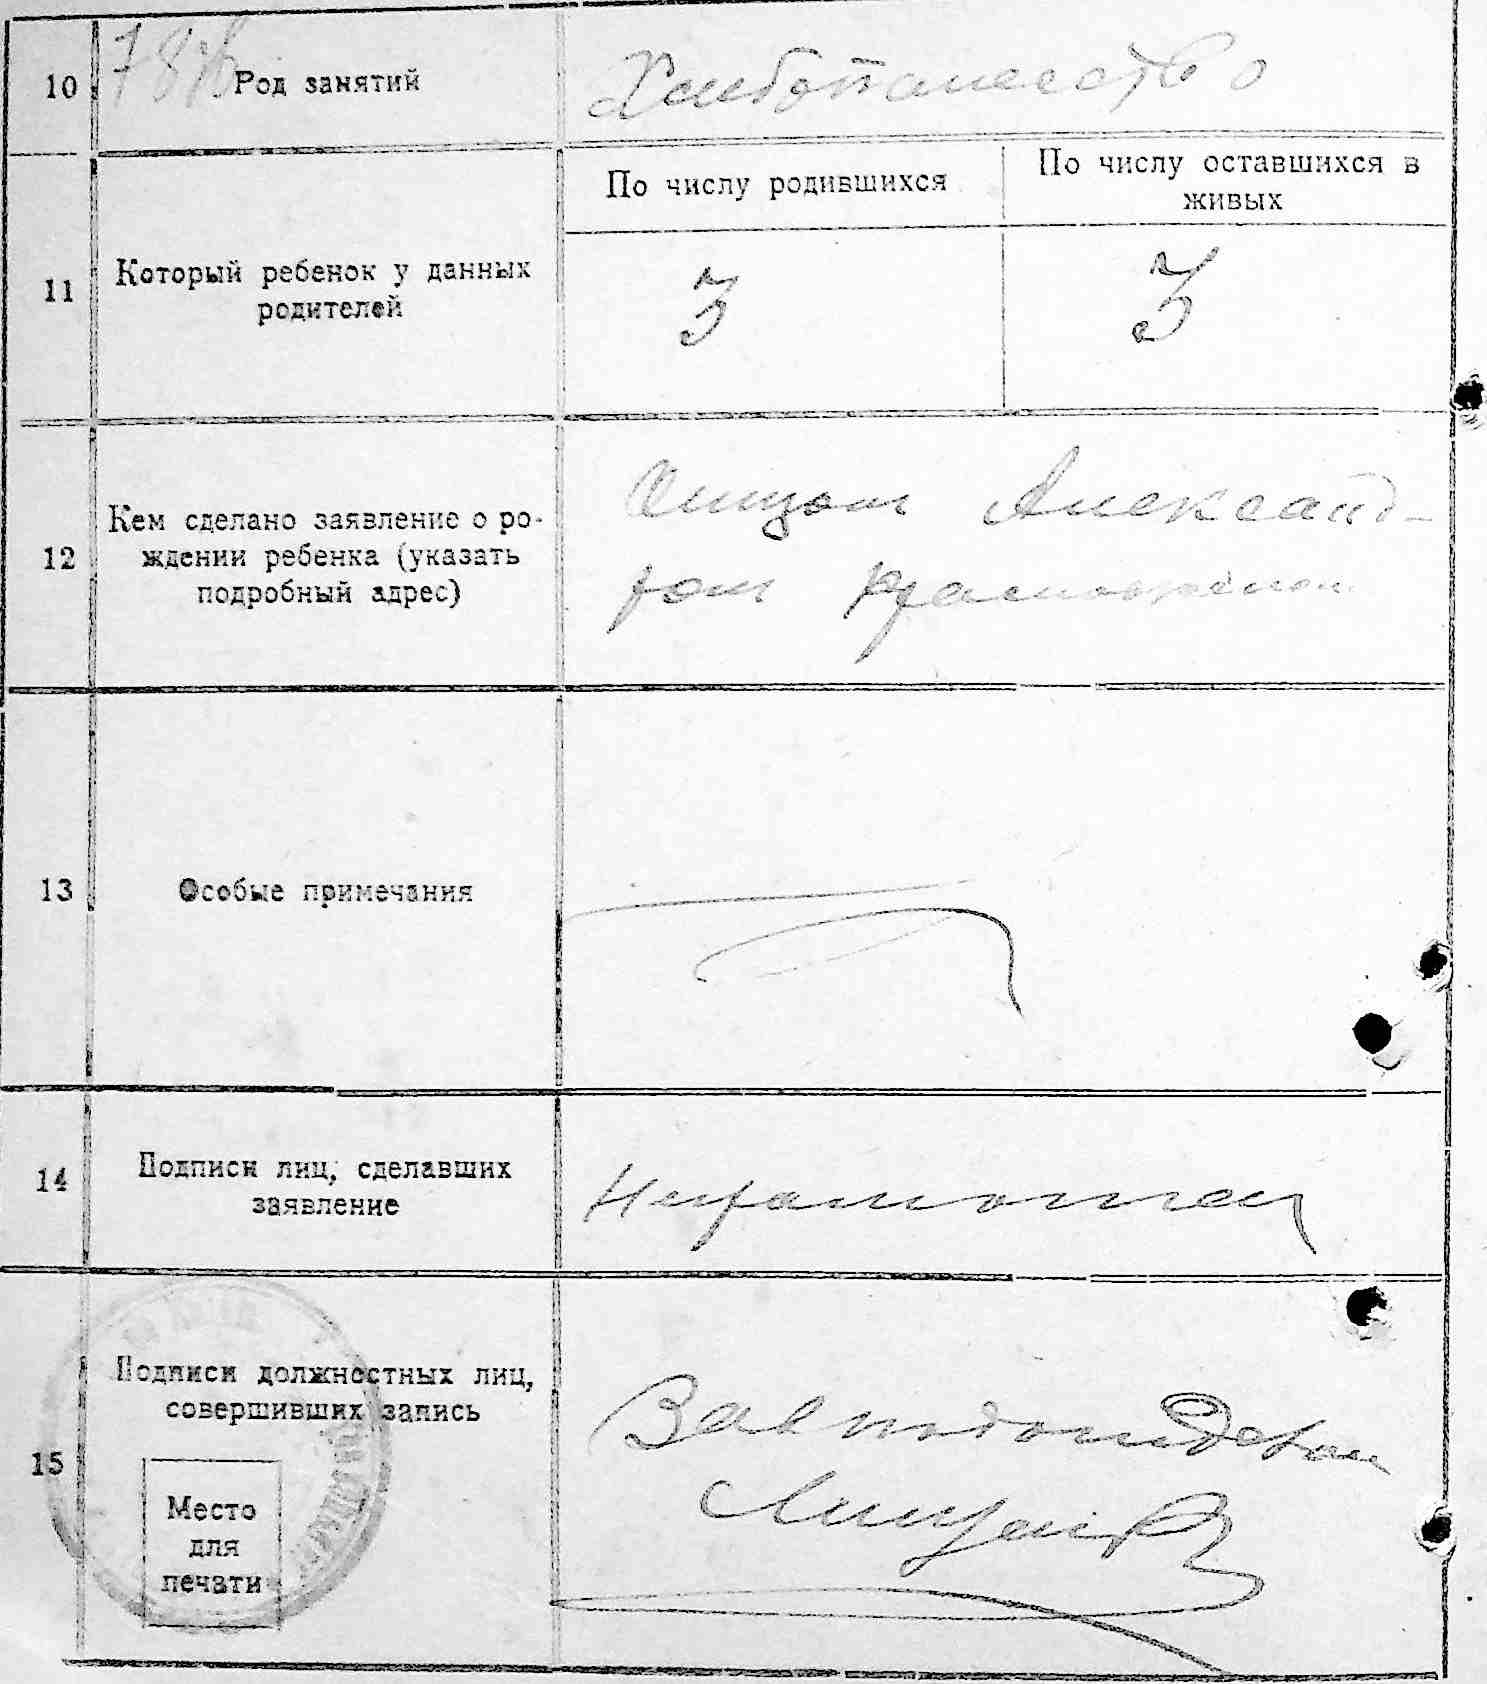 10
Род занятий
Хлебопашество
По числу родившихся
По числу оставшихся в
живых
11
Который ребенок у данных
родителей
3
3
12
Кем сделано заявление о ро-
ждении ребенка (указать
подробный адрес)
Отцом Александ-
ром
13
Особые примечания
14
Подписи лиц, сделавших
заявление
Неграмотен
15
Подписи должностных лиц,
совершивших запись
Место
для
печати